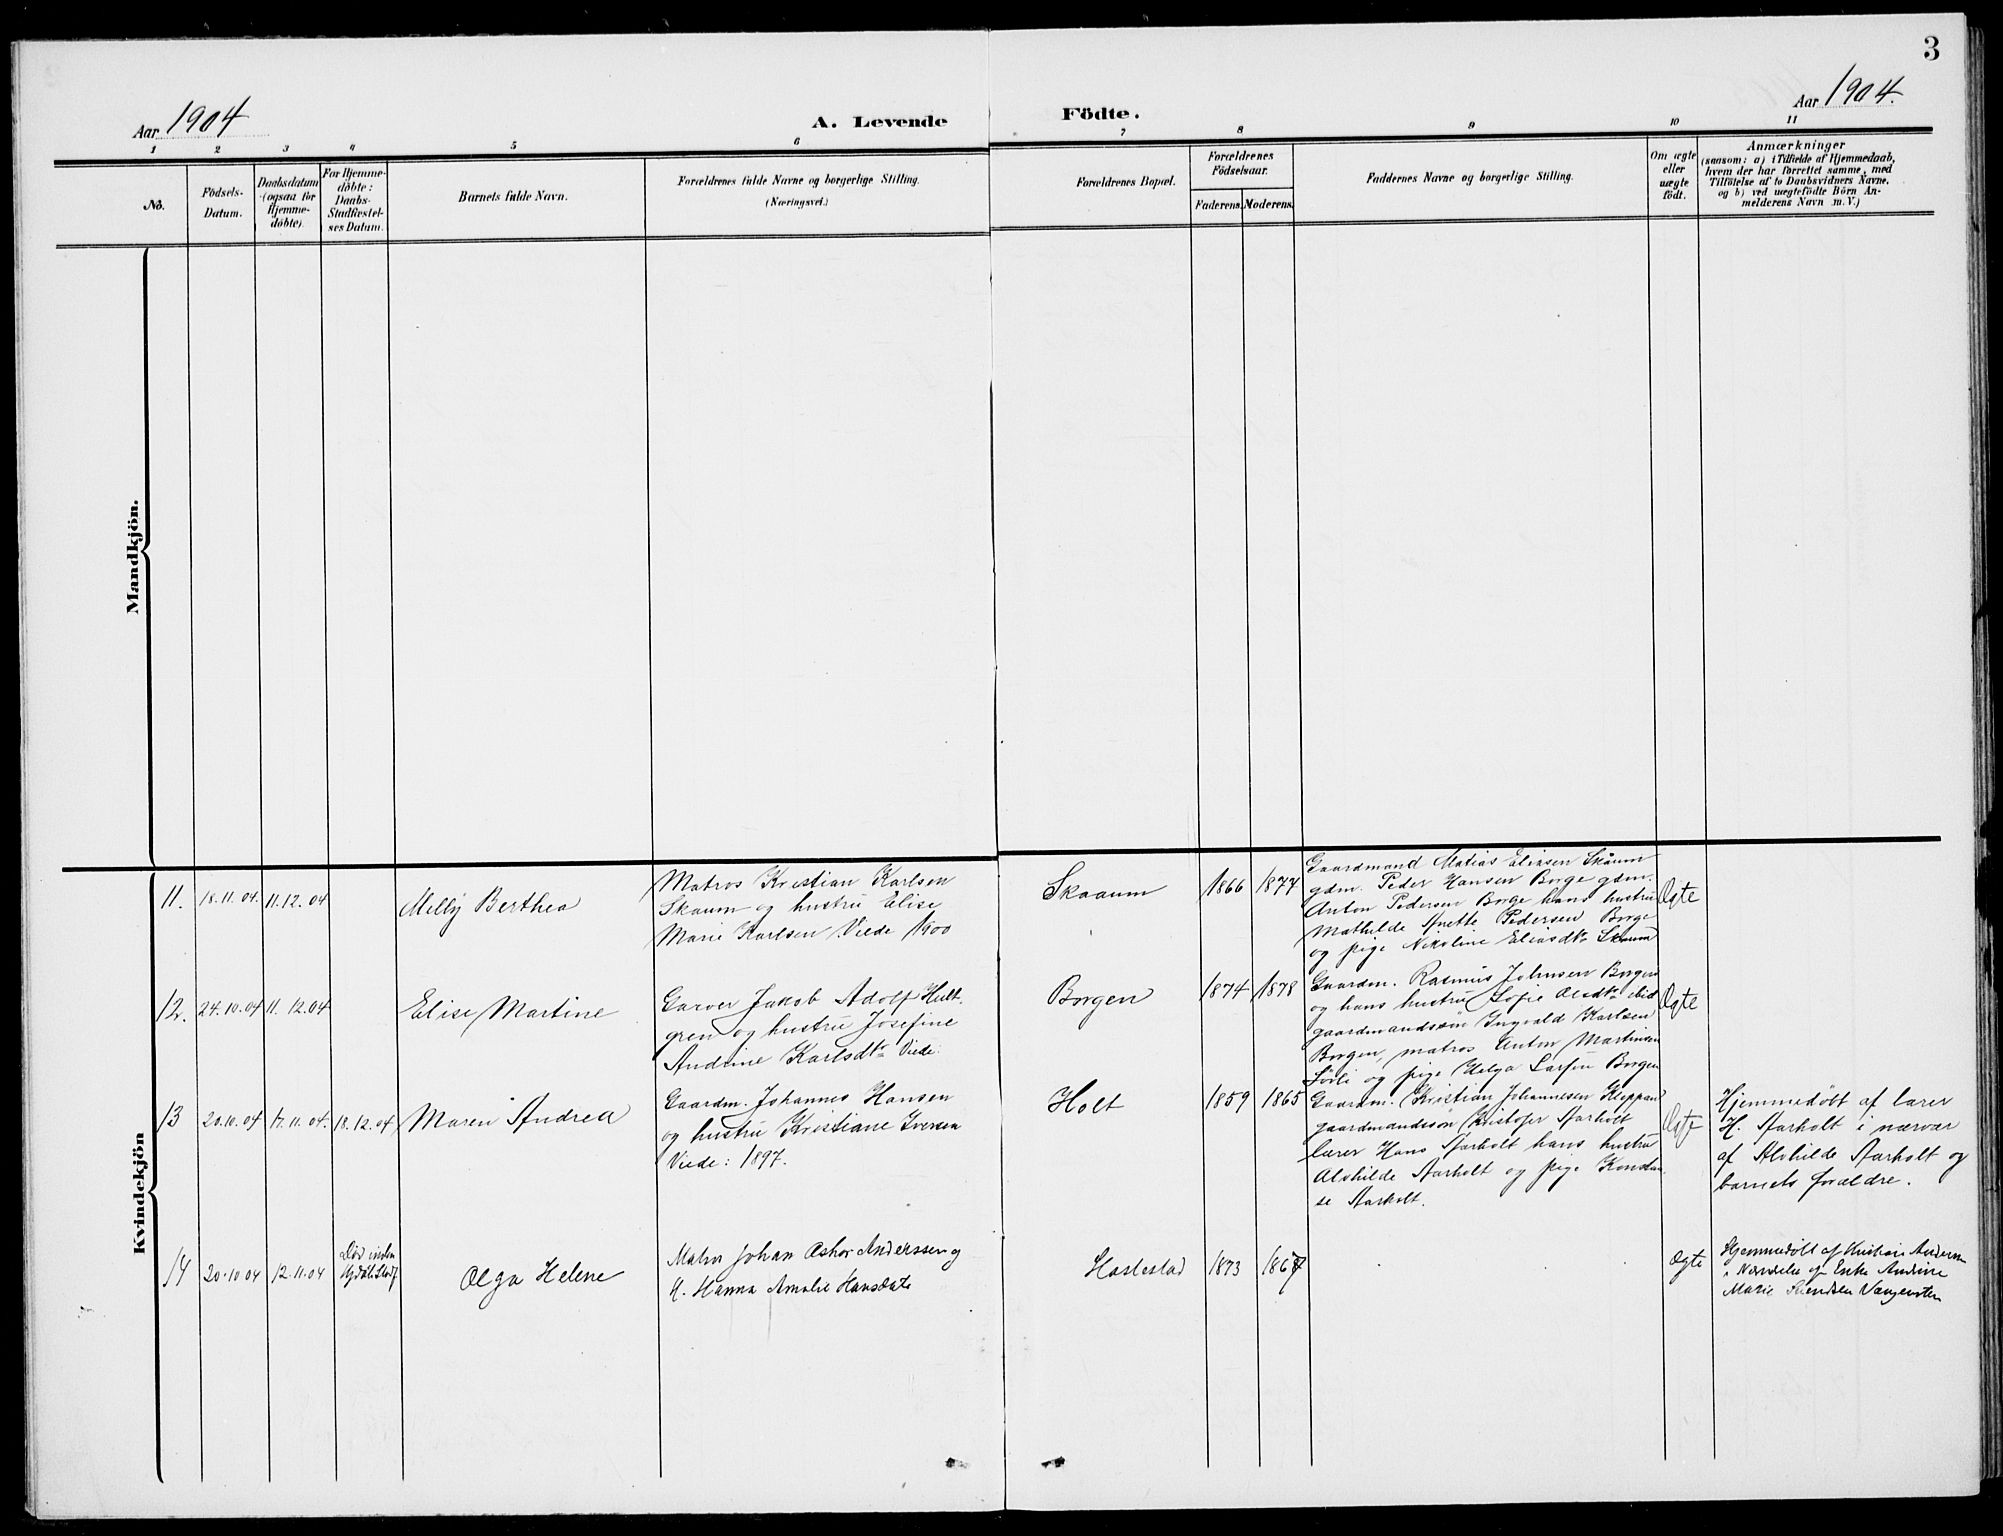 3
Aar 1904
A. Levende Födte.
Aar 1904.
1 2 3 4 5 6 7 8 9 10 11
No.
Födsels-
Datum.
Daabsdatum
(ogsaa for
Hjemme-
döbte).
For Hjemme-
döbte:
Daabs-
Stadfæstel-
ses Datum.
Barnets fulde Navn.
Forældrenes fulde Navne og borgerlige Stilling.
(Næringsvei.)
Forældrenes Bopæl.
Forældrenes
Födselsaar.
Faderens. Moderens.
Faddernes Navne og borgerlige Stilling.
Om ægte
eller
uægte
födt.
Anmærkninger
(saasom: a) i Tilfælde af Hjemmedaab,
hvem der har forrettet samme, med
Tilföielse af to Daabsvidners Navne.
og b) ved uægtefödte Börn An-
melderens Navn m. V.)
Mandkjön.
Kvindekjön
11. 18.11.04. 11.12.04
Melly Berthea
Matros Kristian Karlsen
Skaum og hustru Elise
Marie Karlsen Viede 1900
Skaaum
1866 1877
Gaardmand Matias Eliasen Skåum
gdm. Peder Hansen Borge gdm.
Anton Pedersen Borge hans hustru
Mathilde Anette Pedersen Borge
og pige Nikoline Eliasdtr Skaum
Ægte
12. 24.10.04 11.12.04
Elise Martine
Garver Jakob Adolf Hult-
gren og hustru Josefine
Andrine Karlsdtr Viede:
Borgen
1874 1878
Gaardm. Rasmus Johnsen Borgen
og hans hustru Sofie Olsdtr ibid
gaardmandssøn Ingvald Karlsen
Borgen, matros Anton Martinsen
og pige Helga Larsen Borgen
Ægte
13 20.10.04 17.11.04. 18.12.04
Maren Andrea
Gaardm. Johannes Hansen
og hustru Kristiane Iversen
Viede: 1897.
Holt
1859 1865
Gaardm. Kristian Johannesen Kleppan
gaardmandssøn Kristofer Aarholt
lærer Hans Aarholt hans hustru
Alvhilde Aarholt og pige Konstan-
se Aarholt.
Ægte
Hjemmedøbt af lærer
H. Aarholt i nærvær
af Alvhilde Aarholt og
barnets forældre.
14 20.10.04 12.11.04
Død inden
Olga Helene
Matro Johan Oskar Anderssen og
H. Hanna Amalie Hansdatr
Haslestad
1873 1867
Ægte
Hjemmedøbt af Kristian Andersen
i Nærværelse af Enke Andrine
Marie